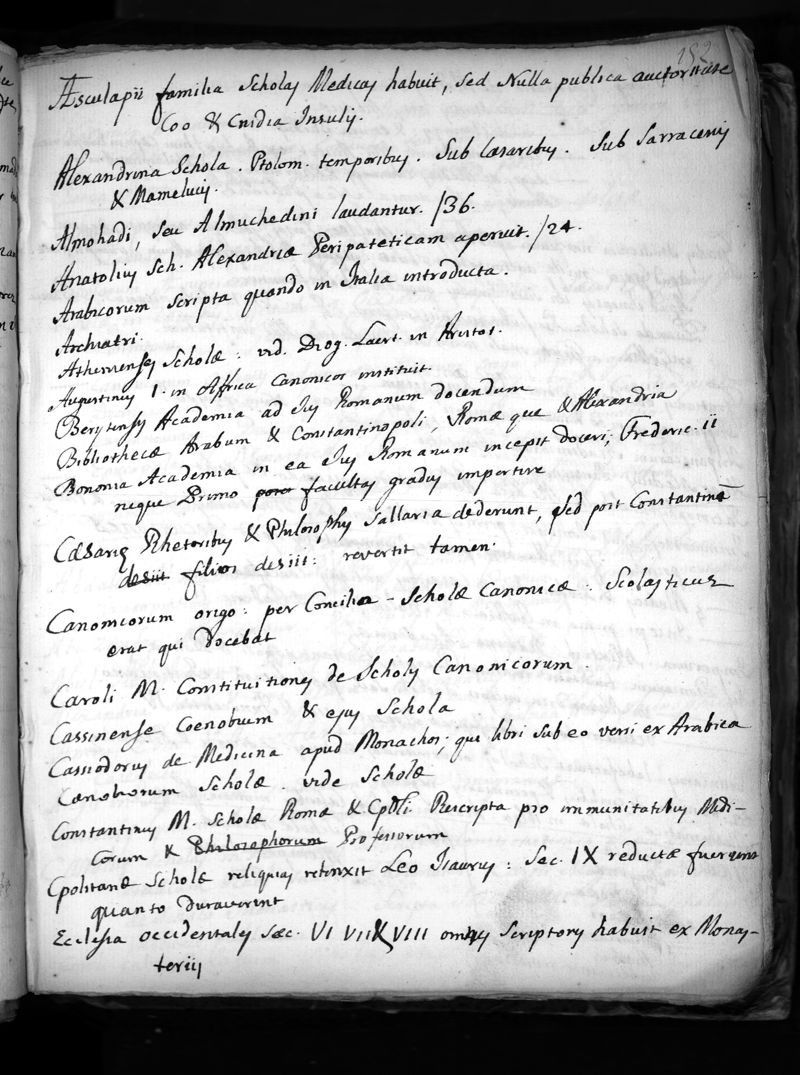 152
Æsculapii familia Scholas Medicas habuit, sed Nulla publica auctoritate
Coo & Cnidia Insulis.
Alexandrina Schola. Ptolom. temporibus. Sub Cæsaribus. Sub Sarracenis
& Mamelucis.
Almohadi, seu Almuchedini laudantur. /36.
Anatolius Sch. Alexandriæ Peripateticam aperuit. /24.
Arabicorum scripta quando in Italia introducta.
Archiatri.
Athenienses Scholæ: vid. Diog. Laert. in Aristot.
Augustinus 1. in Affrica Canonicos instituit.
Berytensis Academia ad Ius Romanum docendum
Bibliothecæ Arabum & Constantinopoli, Romæ que & Alexandria
Bononia Academia in ea Ius Romanum incepit doceri; Frederic. ii
neque Primo facultas gradus impertire
Cæsares Rhetoribus & Philosophis Sallaria dederunt, sed post Constantinū
desiit filios desiii: revertit tamen.
Canonicorum origo: per Concilia - Scholæ Canonicæ: Scolasticus
erat qui Docebat
Caroli M. Constituitiones de Scholis Canonicorum.
Cassinense Coenobium & ejus Schola
Cassiodorus de Medicina apud Monachos; qui libri sub eo versi ex Arabica
Cænobiorum Scholæ. vide Scholæ
Constantinus M. Scholæ Romæ & Cpoli Rescripta pro immunitatibus Medi-
corum & Philosophorum Professorum
Cpolitanæ Scholæ reliquias retinxit Leo Isaurus: Sec. IX reductæ fuerunt
quanto duraverint
Ecclesia occidentales sæc. VI VII & VIII omnes Scriptores habuit ex Monas-
teriis